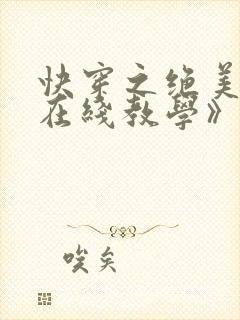 快穿之绝美
在线教学》
唉矣